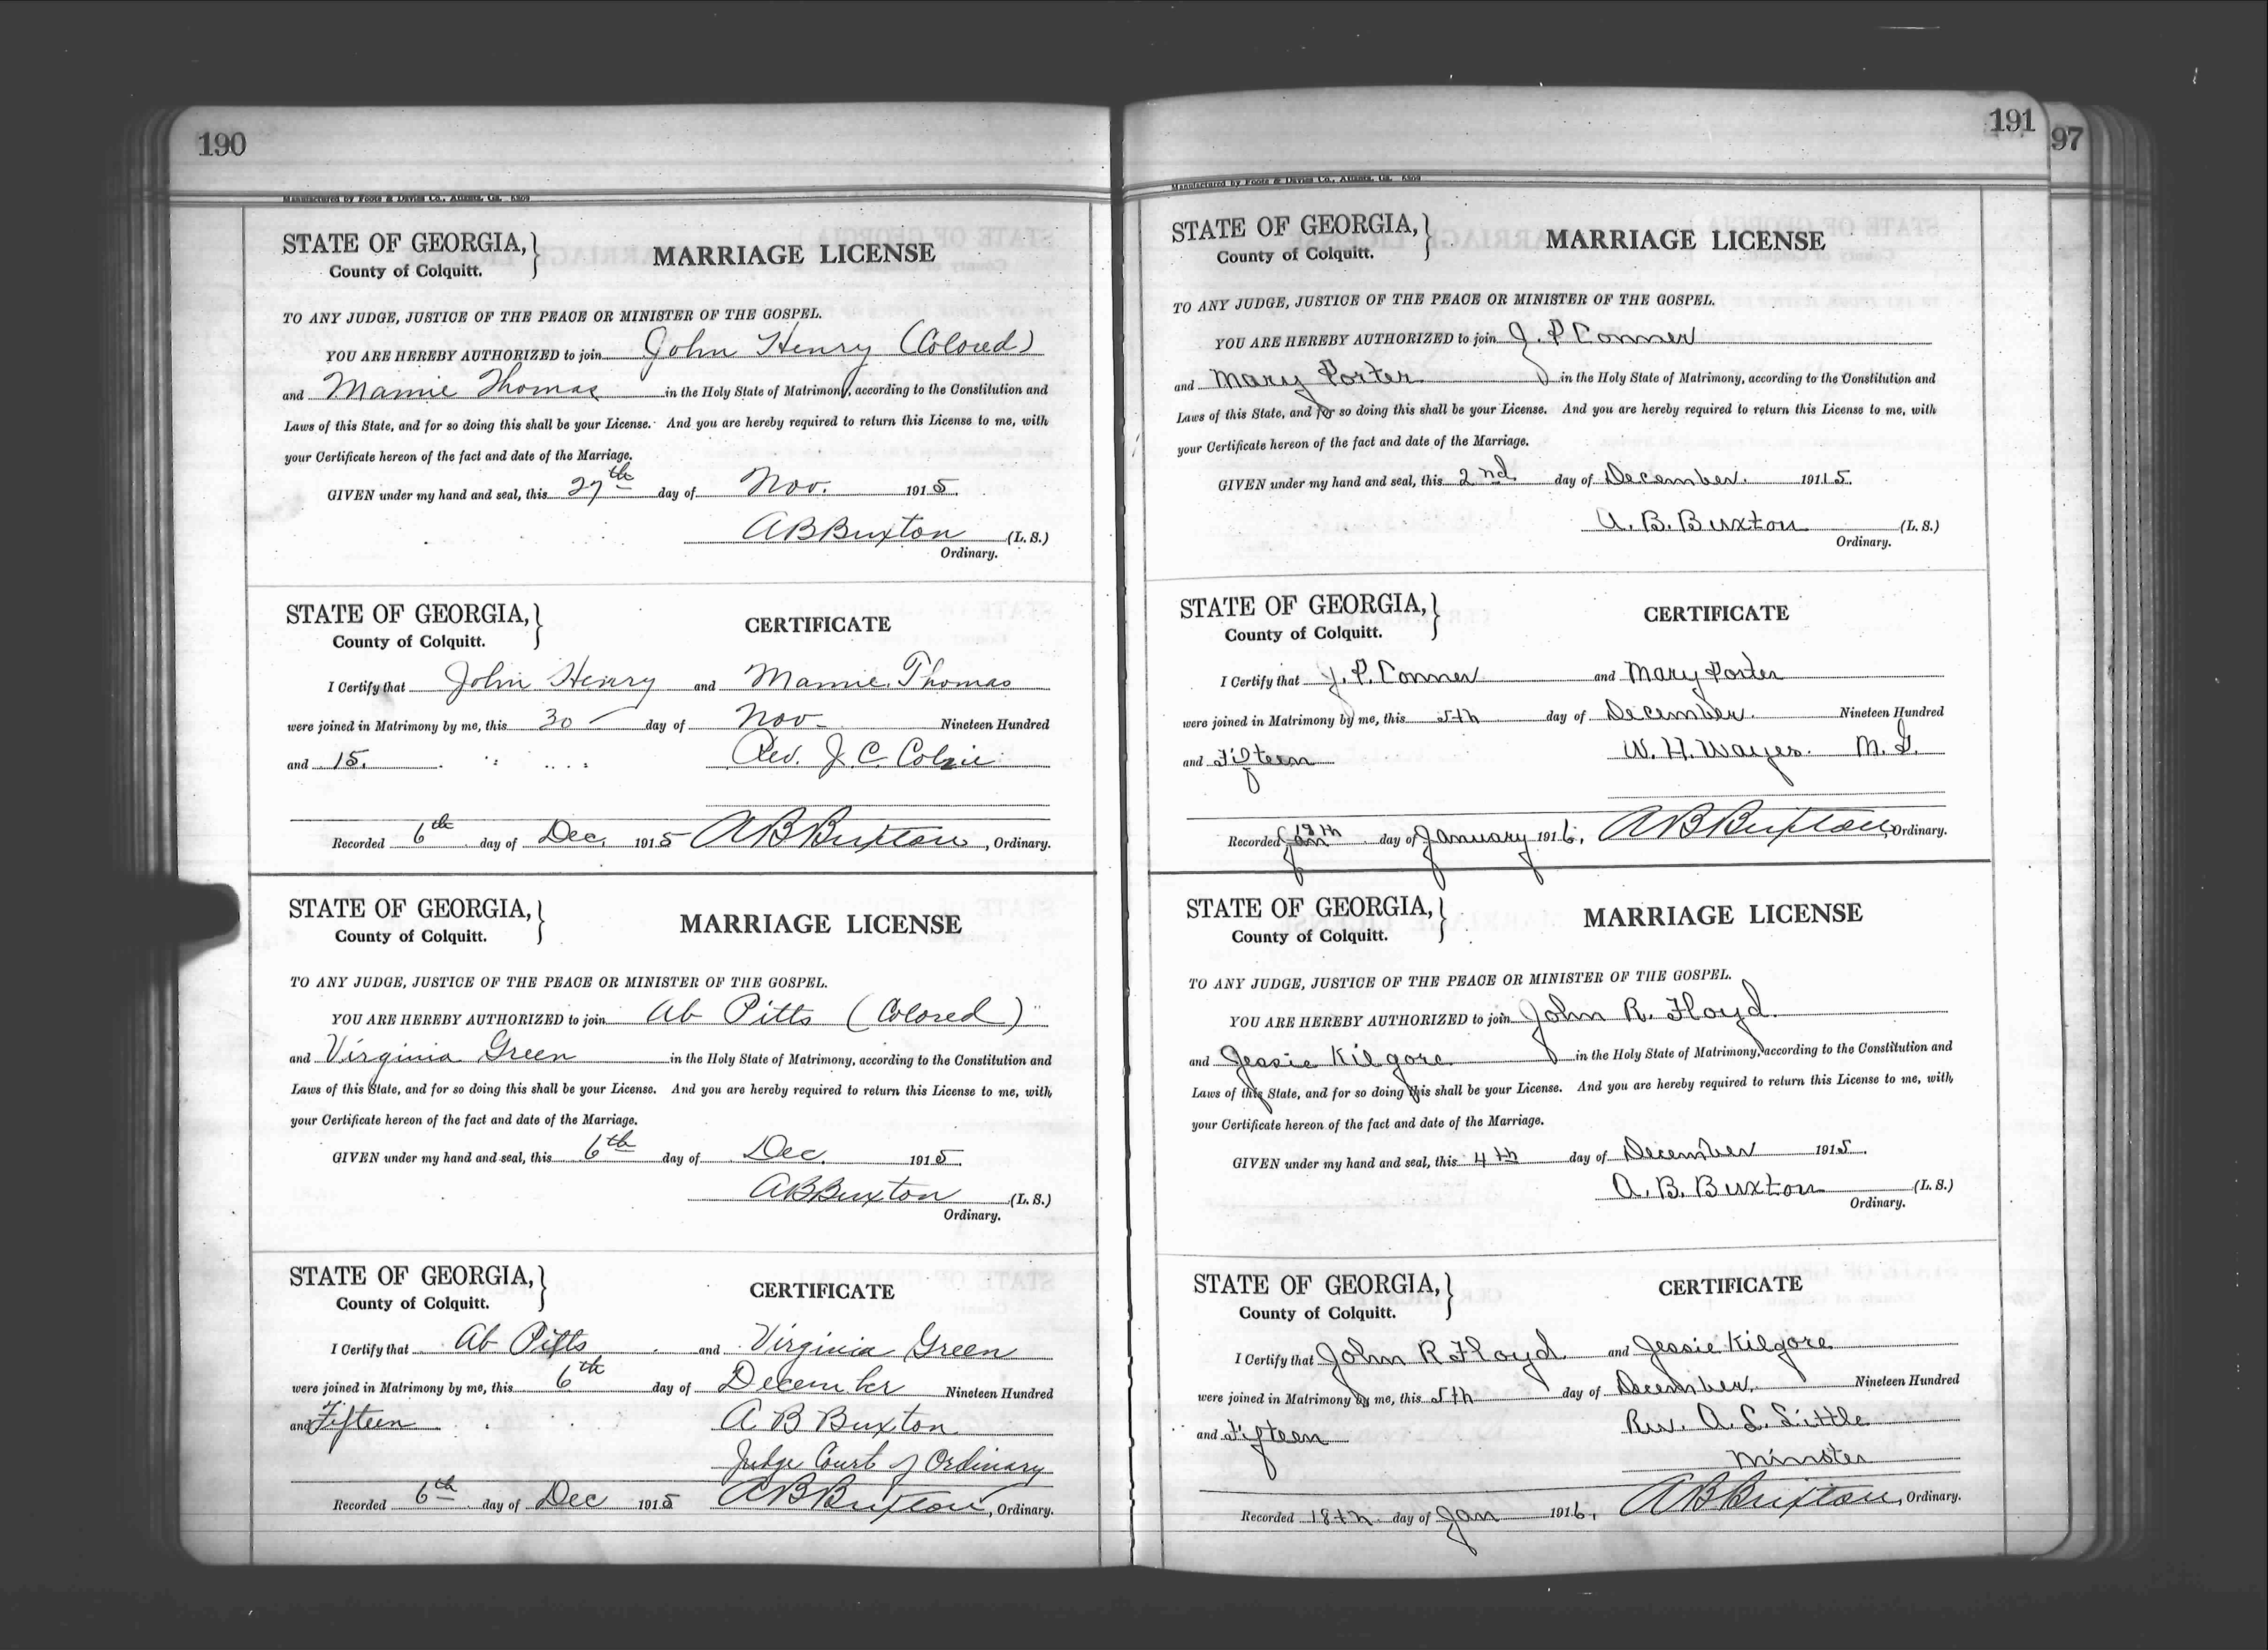 190
Manufactured by Foote & Davies Co., Atlanta, Ga.
STATE OF GEORGIA,
County of Colquitt.
MARRIAGE LICENSE
TO ANY JUDGE, JUSTICE OF THE PEACE OR MINISTER OF THE GOSPEL.
YOU ARE HEREBY AUTHORIZED to join John Henry (Colored)
and Mamie Thomas in the Holy State of Matrimony, according to the Constitution and
Laws of this State, and for so doing this shall be your License. And you are hereby required to return this License to me, with
your Certificate hereon of the fact and date of the Marriage.
GIVEN under my hand and seal, this 27th day of Nov. 1915.
A B Buxton (L. S.)
Ordinary.
STATE OF GEORGIA,
County of Colquitt.
CERTIFICATE
I Certify that John Henry and Mamie Thomas
were joined in Matrimony by me, this 30 day of Nov Nineteen Hundred
and 15.
Rev. J. C.
Recorded 6th day of Dec, 1915 A B Buxton, Ordinary.
STATE OF GEORGIA,
County of Colquitt.
MARRIAGE LICENSE
TO ANY JUDGE, JUSTICE OF THE PEACE OR MINISTER OF THE GOSPEL.
YOU ARE HEREBY AUTHORIZED to join Ab Pitts (Colored)
and Virginia Green in the Holy State of Matrimony, according to the Constitution and
Laws of this State, and for so doing this shall be your License. And you are hereby required to return this License to me, with
your Certificate hereon of the fact and date of the Marriage.
GIVEN under my hand and seal, this 6th day of Dec. 1915.
A B Buxton (L. S.)
Ordinary.
STATE OF GEORGIA,
County of Colquitt.
CERTIFICATE
I Certify that Ab Pitts and Virginia Green
were joined in Matrimony by me, this 6th day of December Nineteen Hundred
and Fifteen
A B Buxton
Judge Court of Ordinary
Recorded 6th day of Dec 1915 A B Buxton, Ordinary.
191
97
Manufactured by Foote & Davies Co., Atlanta, Ga.
STATE OF GEORGIA,
County of Colquitt.
MARRIAGE LICENSE
TO ANY JUDGE, JUSTICE OF THE PEACE OR MINISTER OF THE GOSPEL.
YOU ARE HEREBY AUTHORIZED to join J. P Conner
and Mary Porter in the Holy State of Matrimony, according to the Constitution and
Laws of this State, and for so doing this shall be your License. And you are hereby required to return this License to me, with
your Certificate hereon of the fact and date of the Marriage.
GIVEN under my hand and seal, this 2nd day of December. 1915.
A. B. Buxton (L. S.)
Ordinary.
STATE OF GEORGIA,
County of Colquitt.
CERTIFICATE
I Certify that J. P. Conner and Mary Porter
were joined in Matrimony by me, this 5th day of December. Nineteen Hundred
and Fifteen
W. H. Wayes. M. G.
Recorded 18th day of January 1916, A B Buxton, Ordinary.
STATE OF GEORGIA,
County of Colquitt.
MARRIAGE LICENSE
TO ANY JUDGE, JUSTICE OF THE PEACE OR MINISTER OF THE GOSPEL.
YOU ARE HEREBY AUTHORIZED to join John R. Floyd.
and Jessie Kilgore in the Holy State of Matrimony, according to the Constitution and
Laws of this State, and for so doing this shall be your License. And you are hereby required to return this License to me, with
your Certificate hereon of the fact and date of the Marriage.
GIVEN under my hand and seal, this 4th day of December 1915.
A. B. Buxton (L. S.)
Ordinary.
STATE OF GEORGIA,
County of Colquitt.
CERTIFICATE
I Certify that John R Floyd and Jessie Kilgore
were joined in Matrimony by me, this 5th day of December, Nineteen Hundred
and Fifteen
Rev. A. L. Little
Minster
Recorded 18th day of Jan 1916, A B Buxton, Ordinary.